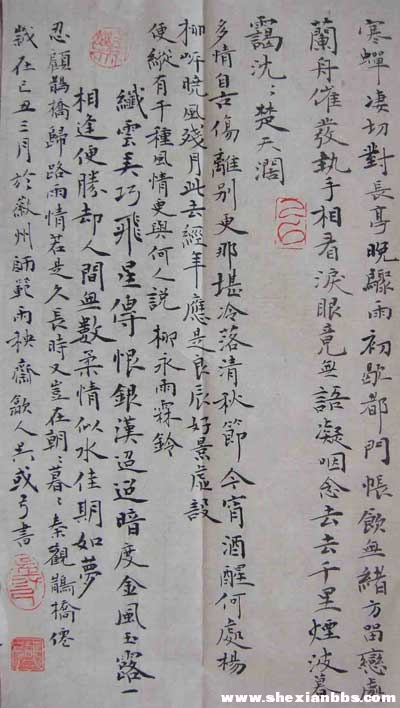 寒蟬凄切對長亭晚驟雨初歇都門帳飲無緒方留戀處
蘭舟催發執手相看淚眼竟無語凝咽念去去千里煙波暮
靄沈〻楚天闊
多情自古傷離別更那堪冷落清秋節今宵酒醒何處楊
柳岸曉風殘月此去經年應是良辰好景虛設
便縱有千種風情更與何人說 柳永雨霖鈴
纖雲弄巧飛星傳恨銀漢迢迢暗度金風玉露一
相逢便勝却人間無數柔情似水佳期如夢
忍顧鵲橋歸路兩情若是久長時又豈在朝〻暮〻秦觀鵲橋僊
歲在己丑三月於徽州師範雨秧齋歙人吳或弓書
www.shexianbbs.com